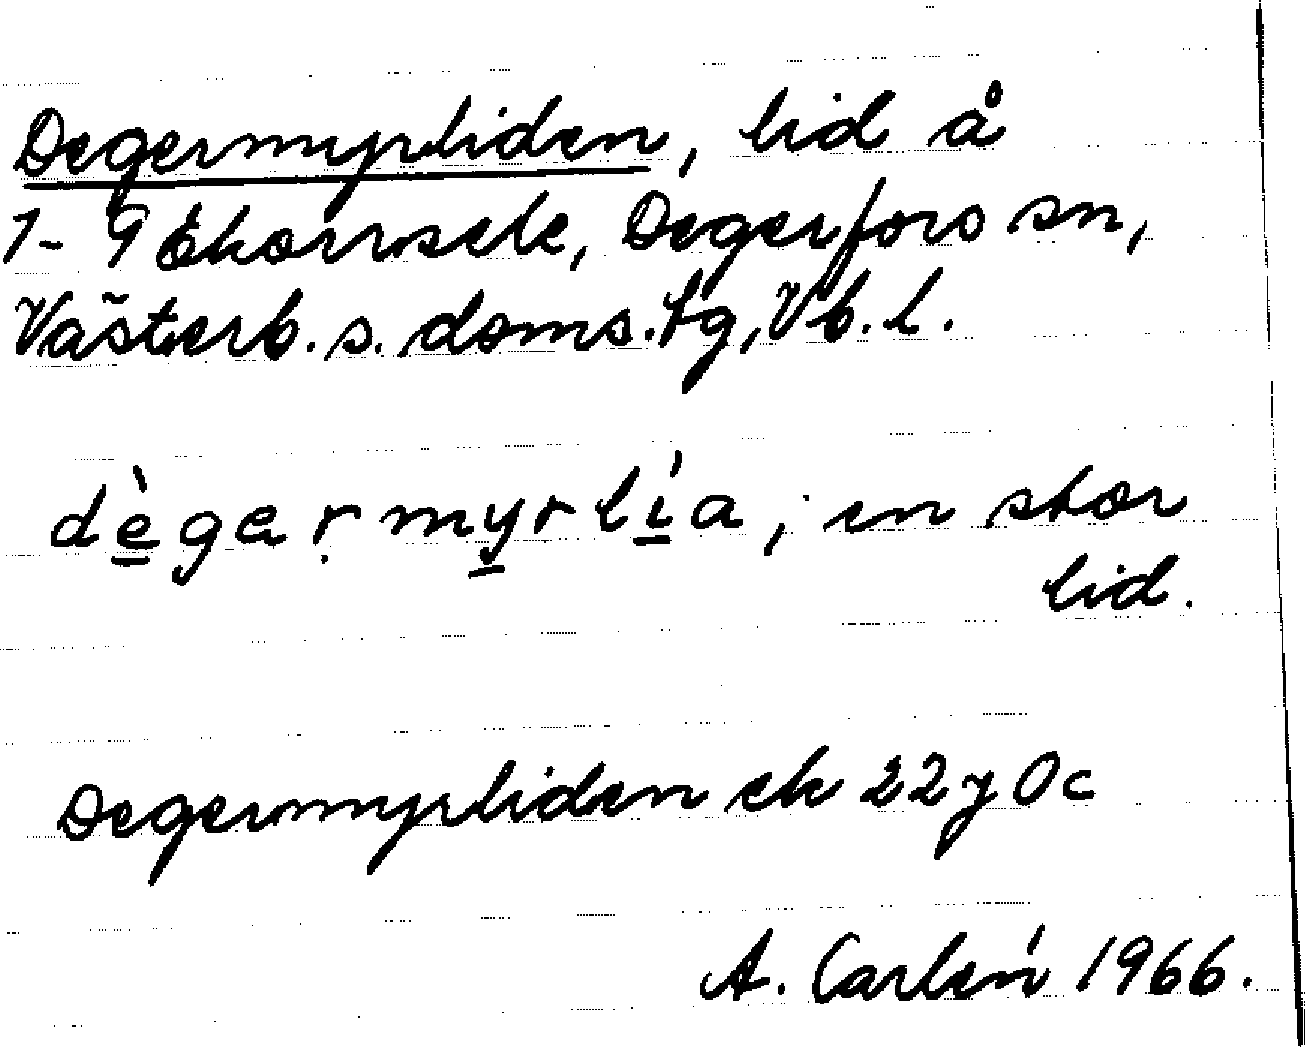 Degermyrliden, lid å
1-9 Ekorrsele, Degerfors sn,
Västerb. s. doms. tg, Vb. l.
dègaṛmyrlía, en stor
lid.
Degermyrliden ek 22y0c
A. Carlén 1966.